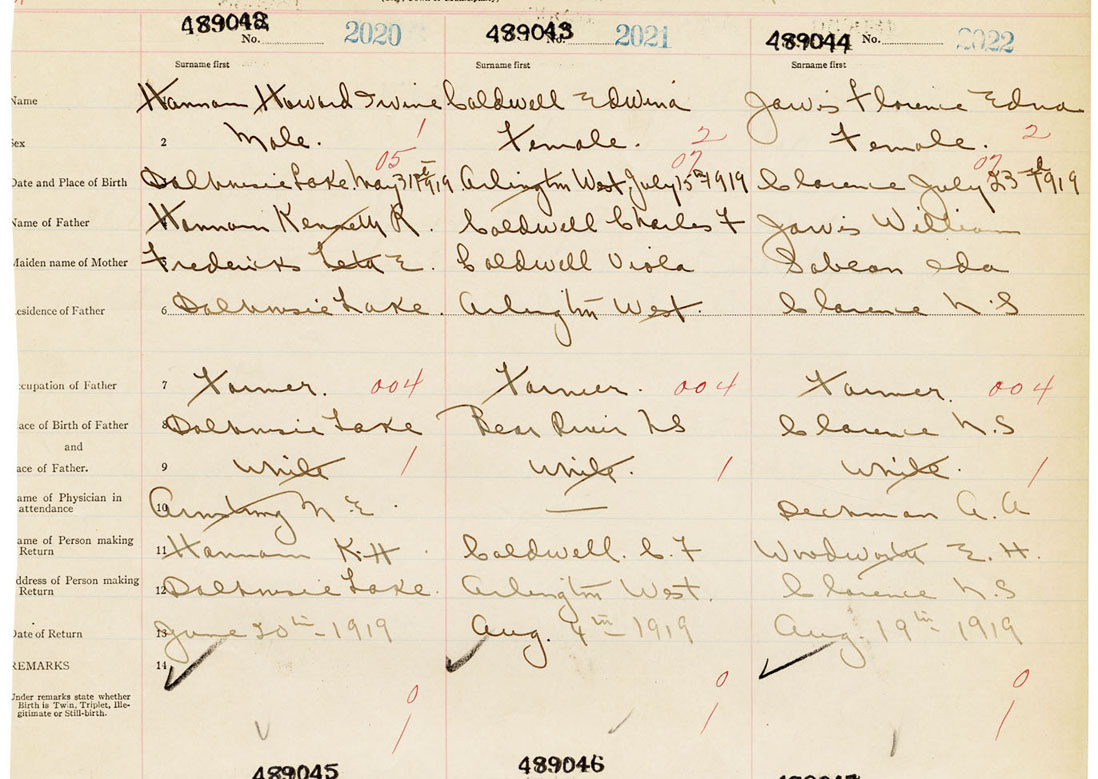 489042 489043 489044
No. 2020 No. 2021 No. 2022
Surname first Surname first Surname first
Name Hannam Howard Irvine Caldwell Edwina Jarvis Florence Edna
ex 2 Male. 1 Female. 2 Female. 2
05 07 07
Date and Place of Birth Dalhousie Lake May 31st 1919 Arlington West, July 15th 1919 Clarence July 23rd 1919
Name of Father Hannam Kenneth R. Caldwell Charles F Jarvis William
Maiden name of Mother Fredericks Leta E. Caldwell Viola Sabean Ida
esidence of Father 6 Dalhousie Lake. Arlington West. Clarence N.S
ccupation of Father 7 Farmer. 004 Farmer. 004 Farmer. 004
ace of Birth of Father 8 Dalhousie Lake Bear River NS Clarence N.S
and
ace of Father. 9 White 1 White. 1 White. 1
ame of Physician in
attendance 10 Armstrong M.E. — Deckman A.A
ame of Person making
Return 11 Hannam K.H. Caldwell. C.F Woodworth E.H.
ddress of Person making
Return 12 Dalhousie Lake. Arlington West. Clarence N.S
Date of Return 13 June 20th-1919 Aug. 4th-1919 Aug. 19th-1919
REMARKS 14
Under remarks state whether
Birth is Twin, Triplet, Ille-
gitimate or Still-birth.
0 0 0
1 1 1
489045 489046